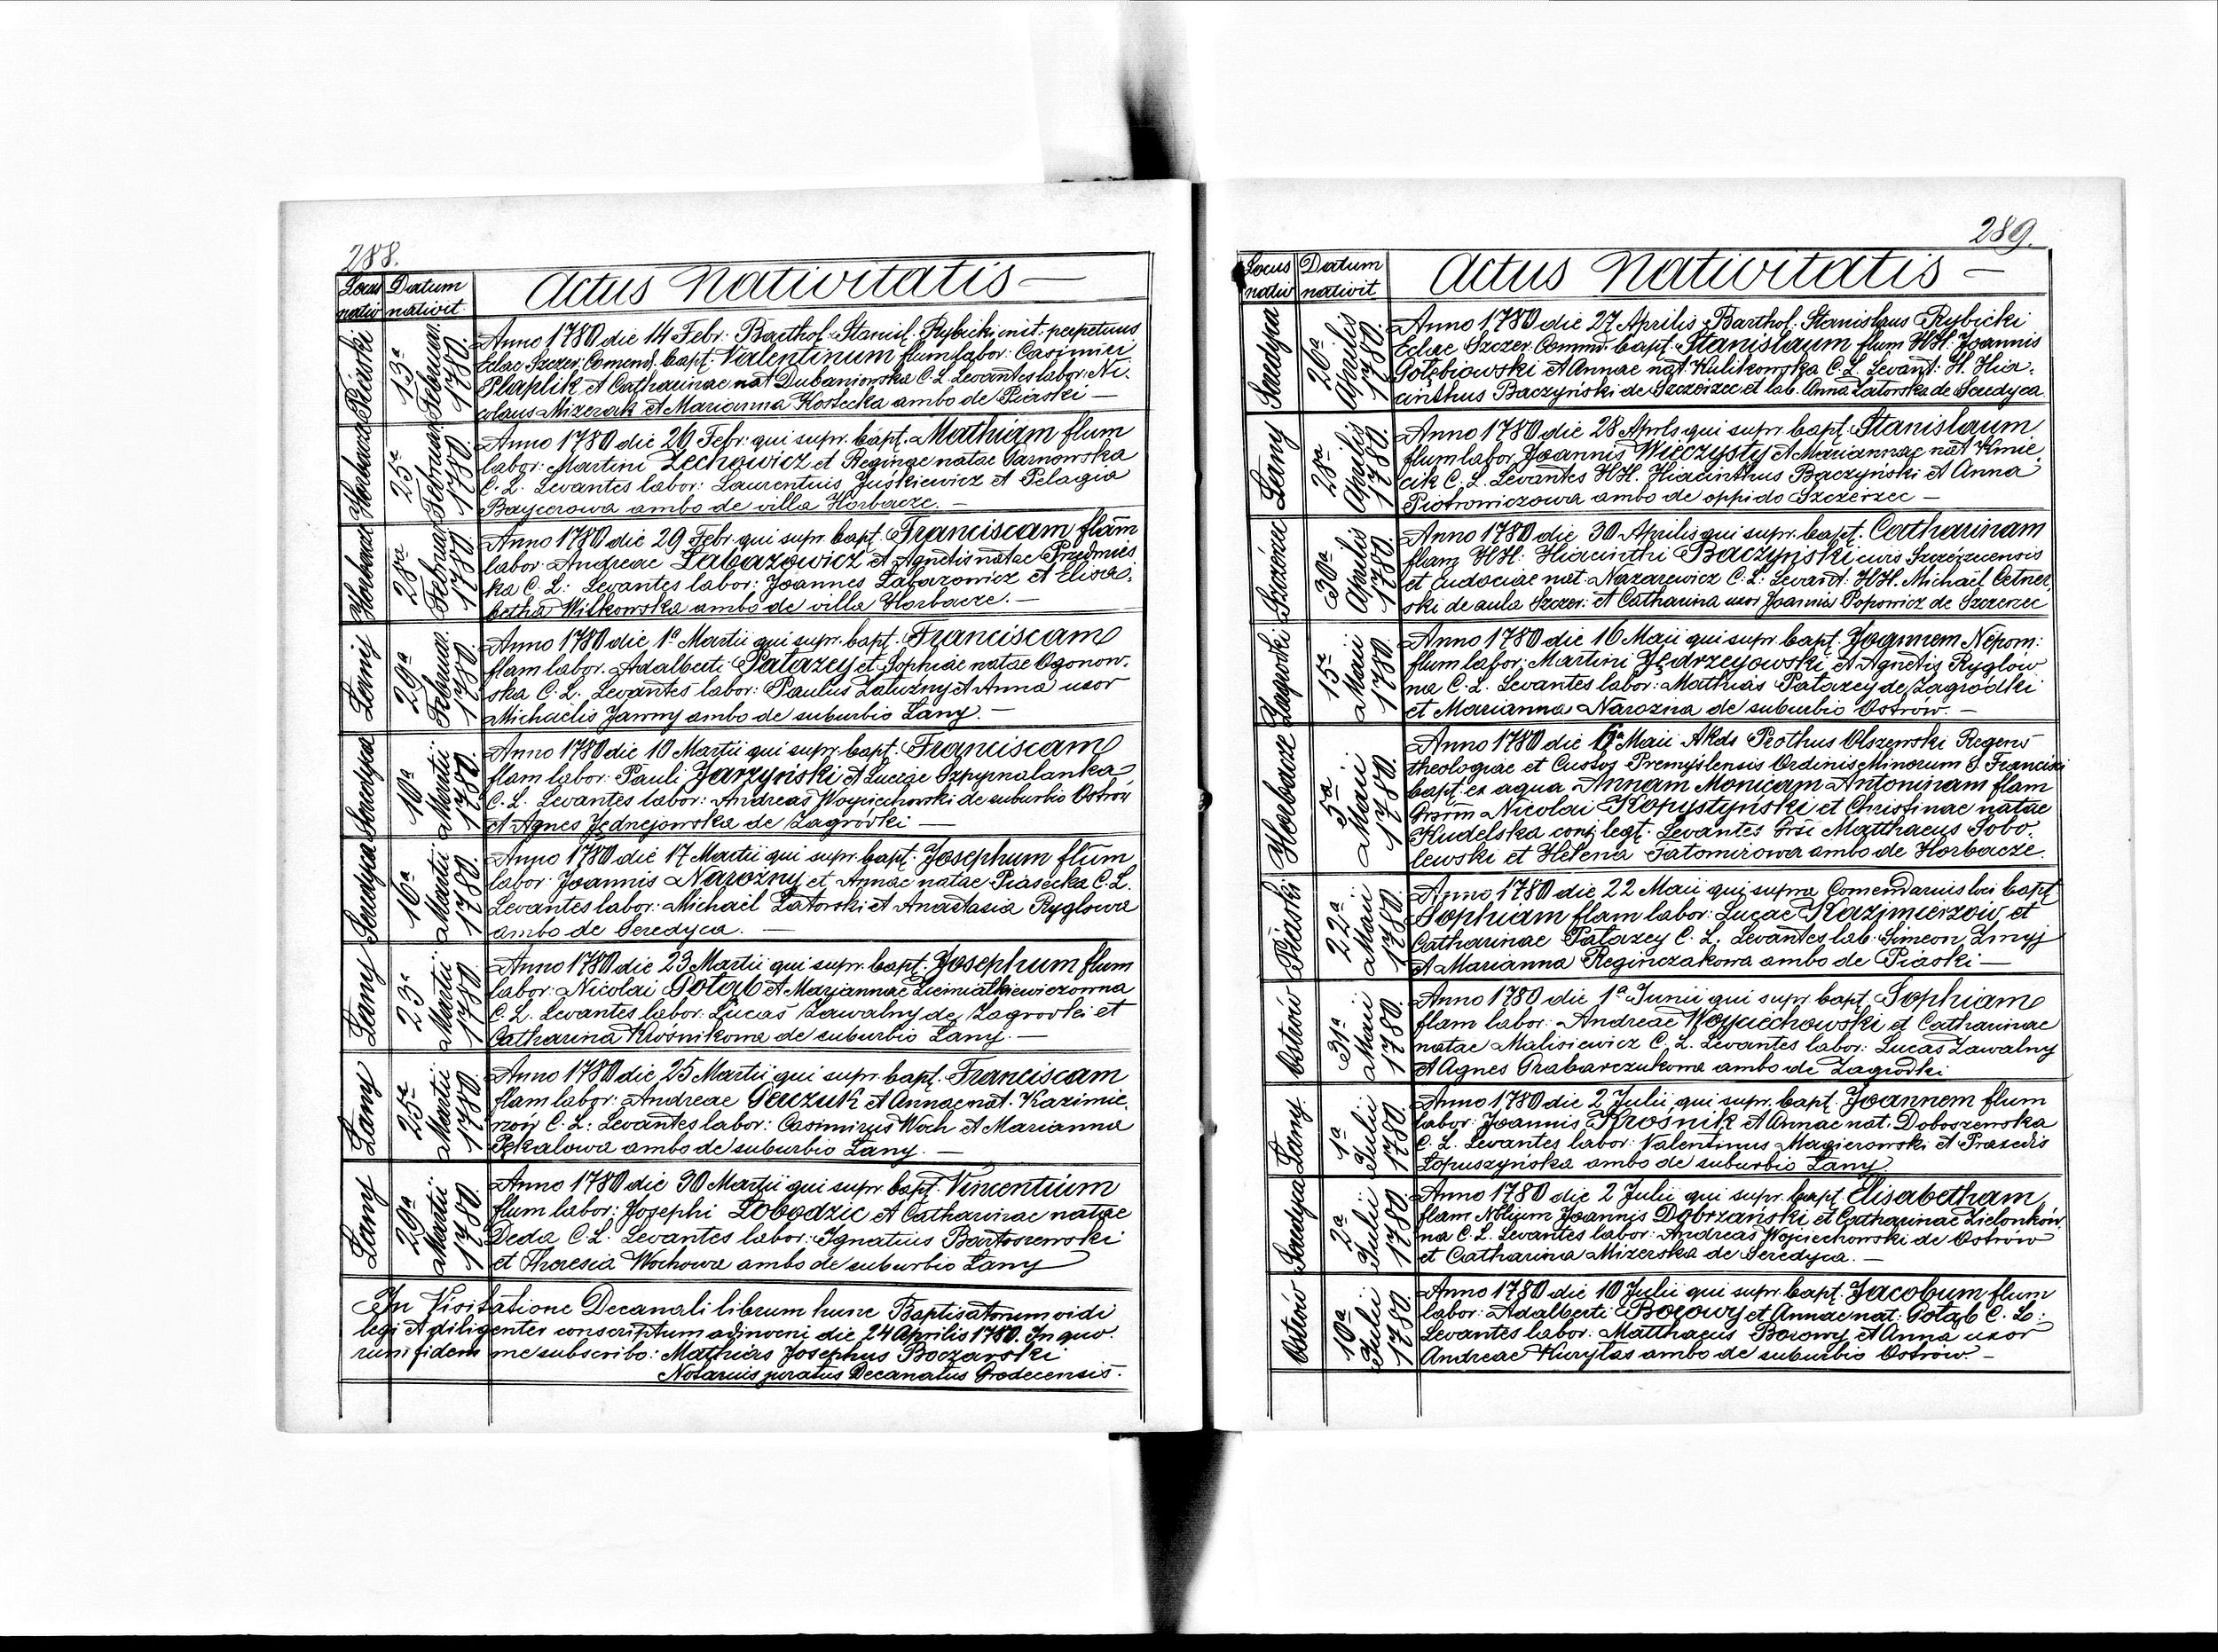 288.
Locus nativ
Datum nativit.
Actus Nativitatis
Piaski
13ª Februar. 1780.
Anno 1780 die 14 Febr: Barthol. Stanisl. Rybicki, init. perpetuus
Eclae Szczer. Comend. bapt. Valentinum flum labor: Casimiri
Plaplik et Catharinae nat Dubaniowska C. L. Levantes labor: Ni-
colaus Mizerak et Marianna Kostecka ambo de Piaski —
Horbacze
25ª Februar. 1780.
Anno 1780 die 26 Febr: qui supr. bapt. Mathiam flum
labor: Martini Lechowicz et Reginae natae Tarnowska
C. L. Levantes labor: Laurentius Juśkiewicz et Pelagia
Baycerowa ambo de villa Horbacze. —
Horbacze
28ª Februar 1780.
Anno 1780 die 29 Febr qui supr. bapt. Franciscam flam
labor: Andreae Łabazowicz et Agnetis natae Przedmies
ka C. L: Levantes labor: Joannes Łabazowicz et Elisa-
betha Witkowska ambo de villa Horbacze. —
Łanij
29ª Februar. 1780.
Anno 1780 die 1ª Martii qui supr. bapt. Franciscam
flam labor. Adalberti Patazey et Sophiae natae Ogonow-
ska C. L. Levantes labor: Paulus Załużny et Anna uxor
Michaelis Jawny ambo de suburbio Łany. —
Seredyca
10ª Martii 1780.
Anno 1780 die 10 Martii qui supr. bapt. Franciscam
flam labor: Pauli Jarzyński et Luciae Szpyrnalanka
C. L. Levantes labor: Andreas Woyciechowski de suburbio Ostrów
et Agnes Jędrejowska de Zagrodki —
Seredyca
16ª Martii 1780.
Anno 1780 die 17 Martii qui supr. bapt. Josephum flum
labor: Joannis Narożny et Annae natae Piasecka C. L.
Levantes labor: Michael Zatorski et Anastasia Ryglowa
ambo de Seredyca. —
Łany
23ª Martii 1780
Anno 1780 die 23 Martii qui supr. bapt. Josephum flum
labor: Nicolai Gołąb et Mariannae
C. L. Levantes labor: Lucas Zawalny de Zagrodki et
Catharina Krośnikowa de suburbio Łany. —
Łany
25ª Martii 1780
Anno 1780 die 25 Martii qui supr. bapt. Franciscam
flam labor: Andreae Gerczuk et Annae nat. Kazimie-
rzów C. L: Levantes labor: Casimirus Woch et Marianna
Pękalowa ambo de suburbio Łany. —
Łany
29ª Martii 1780.
Anno 1780 die 30 Martii qui supr. bapt. Vincentium
flum labor: Josephi Łobodzic et Catharinae natae
Deda C. L. Levantes labor: Ignatius Bartoszewski
et Theresia Wochowa ambo de suburbio Łany
In Visitatione Decanali librum hunc Baptisatorum vidi
legi et diligenter conscriptum adinveni die 24 Aprilis 1780. In quo-
rum fidem me subscribo: Mathias Josephus Boczarski
Notarius juratus Decanatus Grodecensis.
289.
Locus nativ
Datum nativit
Actus Nativitatis —
Seredyca
26ª Aprilis 1780.
Anno 1780 die 27 Aprilis Barthol: Stanislaus Rybicki
Eclae Szczer. Commd. bapt. Stanislaum flum HH: Joannis
Gołębiowski et Annae nat. Kulikowska C. L. Levant: H. Hia-
cinthus Baczyński de Szczerzec et lab. Anna Zatorska de Seredyca
Łany
28ª Aprilis 1780.
Anno 1780 die 28 Aprls qui supr. bapt. Stanislaum
flum labor Joannis Wieczysty et Mariannae nat Kmie-
cik C. L. Levantes HH. Hiacinthus Baczyński et Anna
Piotrowiczowa ambo de oppido Szczerzec —
Szczérzec
30ª Aprilis 1780.
Anno 1780 die 30 Aprilis qui supr. bapt. Catharinam
flam HH: Hiacinthi Baczyński civis Szczerzecensis
et Eudociae nat. Nazarewicz C. L: Levant: HH. Michael Cetner-
ski de aula Szczer: et Catharina uxor Joannis Popowicz de Szczerzec
Zagrodki
15ª Maii 1780.
Anno 1780 die 16 Maii qui supr. bapt. Joannem Nepom:
flum labor: Martini Jędrzeyowski et Agnetis Ryglów
na C. L. Levantes labor: Mathias Patazey de Zagródki
et Marianna Narozna de suburbio Ostrów. —
Horbacze
5ª Maii 1780.
Anno 1780 die 6ª Maii Akds Prothus Olszewski Regens
theologiae et Custos Premysliensis Ordinis Minorum S. Francisci
bapt. ex aqua Annam Monicam Antoninam flam
Grsrm Nicolai Kopystyński et Christinae natae
Kudelska conj. legt. Levantes Grsi Matthaeus Sobo-
lewski et Helena Tatomirowa ambo de Horbacze.
Piaski
22ª Maii 1780.
Anno 1780 die 22 Maii qui supra Comendarius loci bapt
Sophiam flam labor: Lucae Kazimierzów et
Catharinae Patazey C. L. Levantes lab. Simeon Zmyj
et Marianna Reginczakowa ambo de Piaski —
Ostrów
31ª Maii 1780.
Anno 1780 die 1ª Junii qui supr. bapt. Sophiam
flam labor: Andreae Woyciechowski et Catharinae
natae Malisiewicz C. L. Levantes labor: Lucas Zawalny
et Agnes Grabarczukowa ambo de Zagrodki
Łany.
1ª Julii 1780.
Anno 1780 die 2 Julii qui supr. bapt. Joannem flum
labor: Joannis Krośnik et Annae nat. Doboszewska
C. L. Levantes labor: Valentinus Magierowski et Praxedis
Łopuszyńska ambo de suburbio Łany
Seredyca
2ª Julii 1780.
Anno 1780 die 2 Julii qui supr. bapt. Elisabetham
flam Nblium Joannis Dobrzański et Catharinae Zielonków-
na C. L. Levantes labor: Andreas Wojciechowski de Ostrów
et Catharina Mizerska de Seredyca. —
Ostrów
10ª Julii 1780.
Anno 1780 die 10 Julii qui supr. bapt. Jacobum flum
labor: Adalberti Borowy et Annae nat: Gołąb C. L:
Levantes labor: Matthaeus Borowy et Anna uxor
Andreae Kurylas ambo de suburbio Ostrów. —